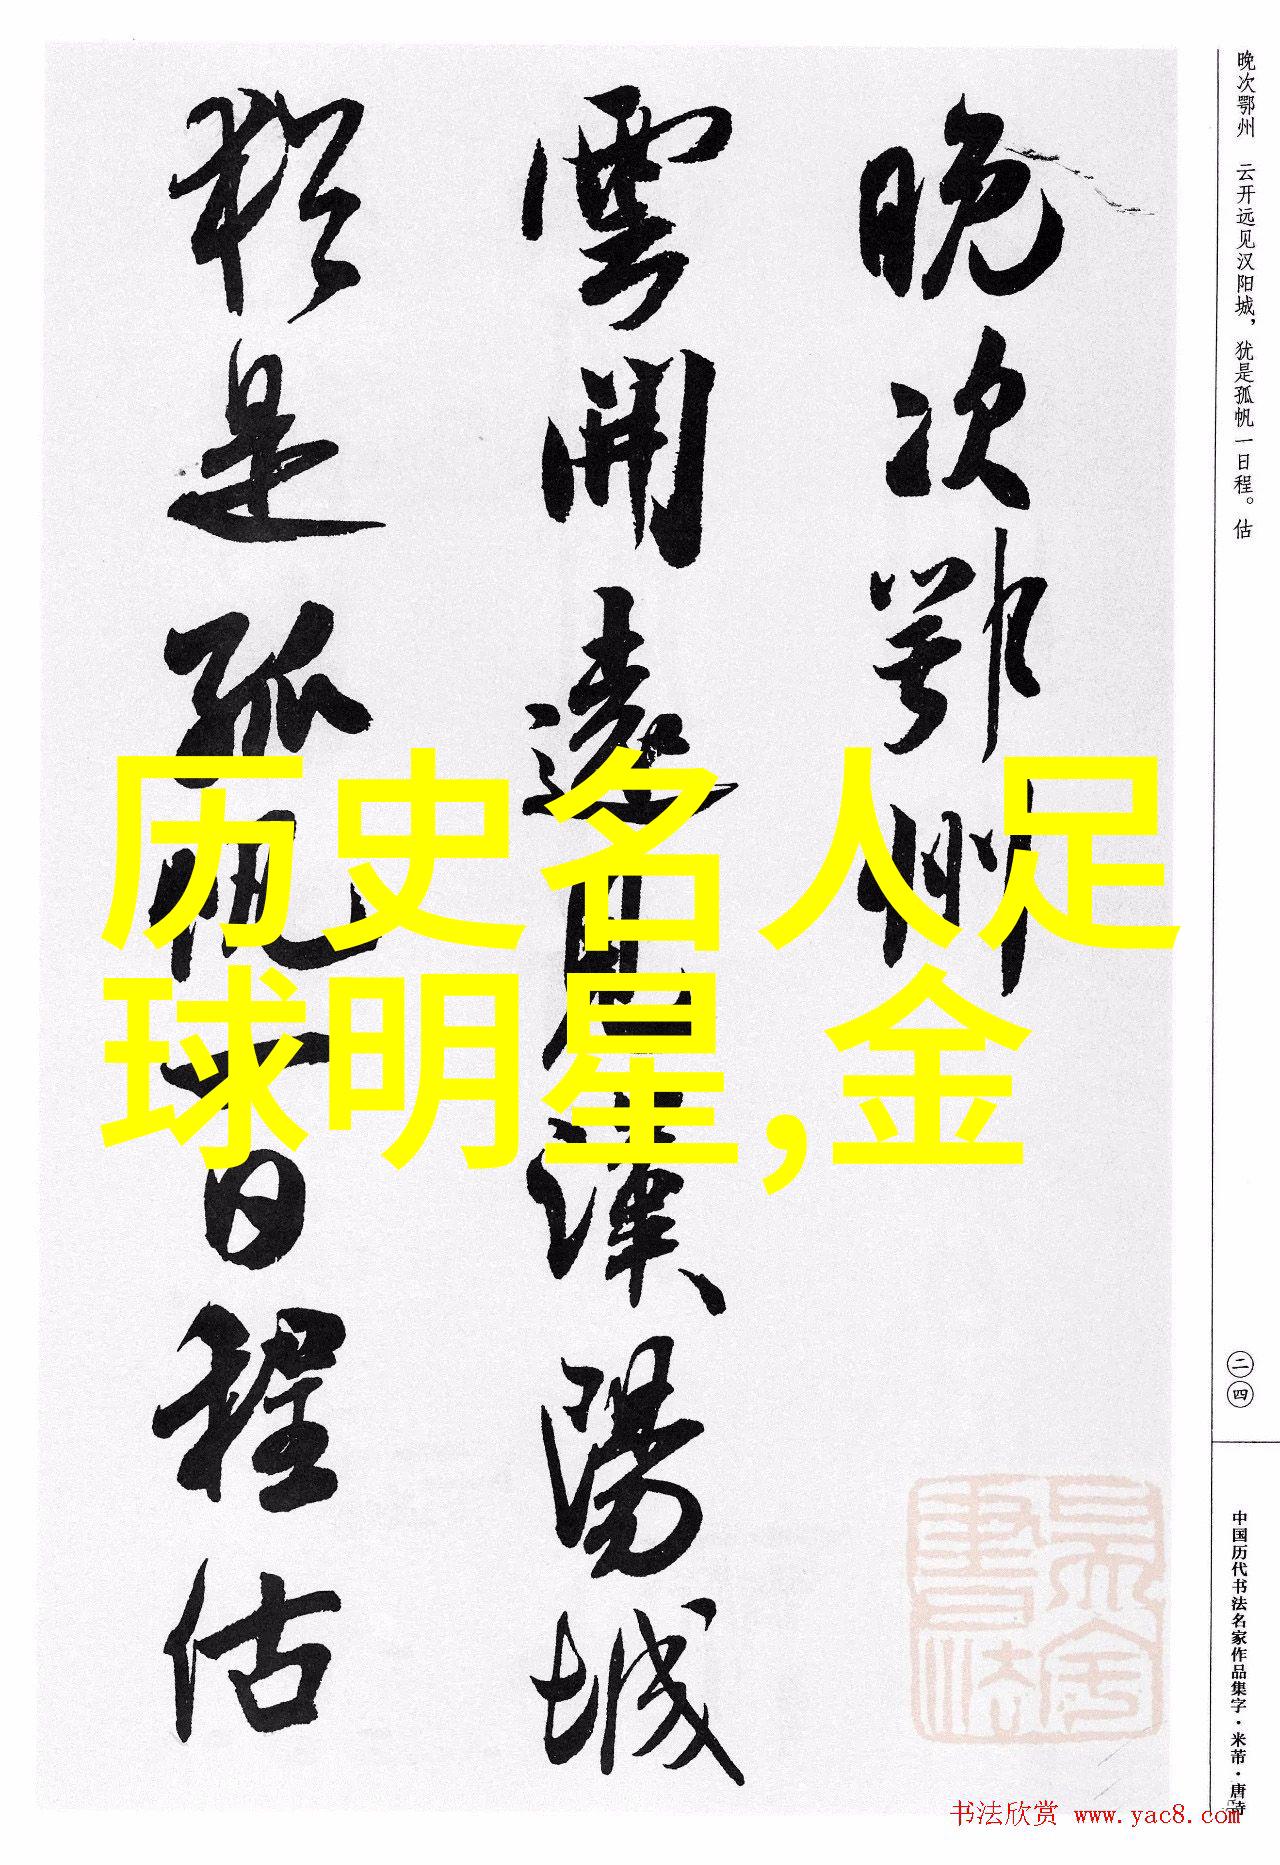 晚次鄂州
雲開遠見漢陽城
猶是孤帆一日程估
历史名人足
球明星,金
晚次鄂州 云开远见汉阳城，犹是孤帆一日程。估
二四
中国历代书法名家作品集字·米芾·唐诗
书法欣赏 www.yac8.com